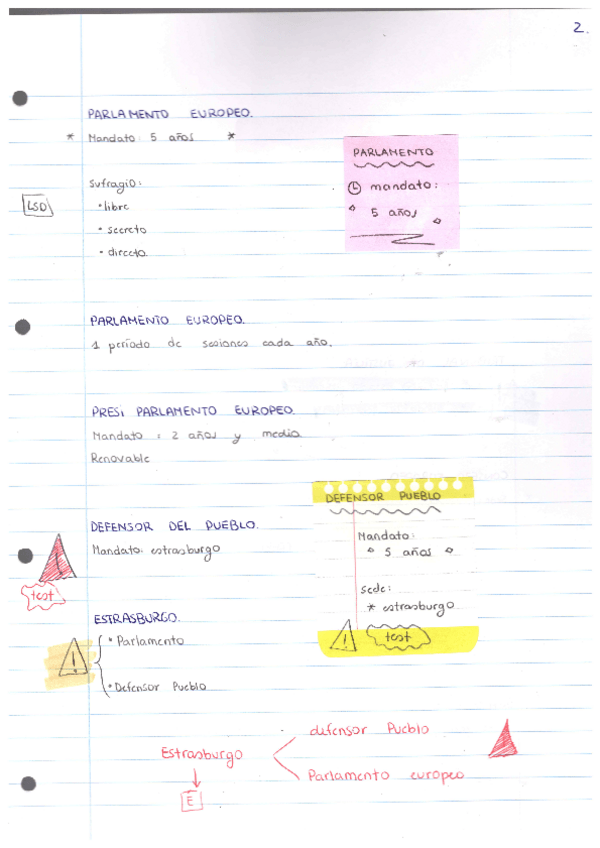 2.
PARLAMENTO EUROPEO.
* Mandato: 5 años *
Sufragio:
LSD
• libre
• secreto
• directo
PARLAMENTO
mandato:
5 años
PARLAMENTO EUROPEO.
1 período de sesiones cada año.
PRESI PARLAMENTO EUROPEO.
Mandato: 2 años y medio
Renovable
DEFENSOR DEL PUEBLO.
Mandato: estrasburgo
test
DEFENSOR PUEBLO
Mandato:
5 años
sede:
* estrasburgo
! test
ESTRASBURGO.
! • Parlamento
• Defensor Pueblo
Estrasburgo
defensor Pueblo
Parlamento europeo
E